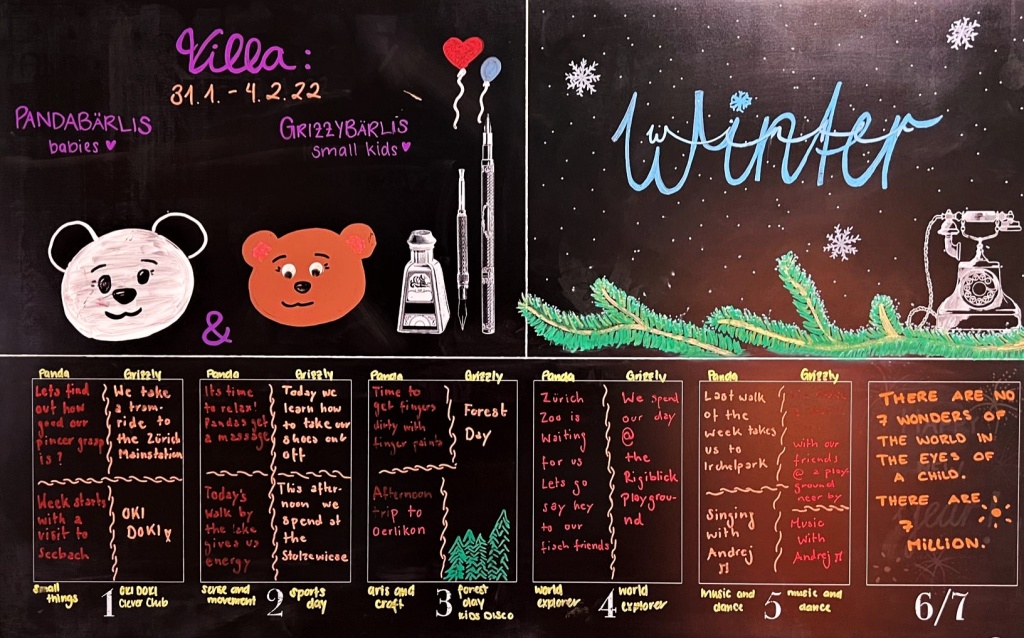 Villa:
31.1. - 4.2.22
PANDABÄRLIS
babies ♥
GRIZZYBÄRLIS
small kids ♥
&
Winter
Panda
Lets find
out how
good our
pincer grasp
is ?
Week starts
with a
visit to
Seebach
Grizzly
We take
a tram-
ride to
the Zürich
Mainstation
OKI
DOKI
small
things
1
OKI DOKI
Clever Club
Panda
Its time
to relax!
Pandas get
a massage
Today's
walk by
the lake
gives us
energy
Grizzly
Today we
learn how
to take our
shoes out
off
This after-
noon we
spend at
the
Stolzewiese
sense and
movement
2
sports
day
Panda
Time to
get fingers
dirty with
finger paints
Afternoon
trip to
Oerlikon
Grizzly
Forest
Day
arts and
craft
3
forest
day
KIDS DISCO
Panda
Zürich
Zoo is
waiting
for us
Lets go
say hey
to our
fisch friends
Grizzly
We spend
our day
@
the
Rigiblick
playgrou-
nd
world
explorer
4
world
explorer
Panda
Last walk
of the
week takes
us to
Irchelpark
Singing
with
Andrej
Grizzly
with our
friends
@ a play-
ground
near by
Music
With
Andrej
Music and
dance
5
music and
dance
THERE ARE NO
7 WONDERS OF
THE WORLD IN
THE EYES OF
A CHILD.
THERE ARE
7
MILLION.
6/7